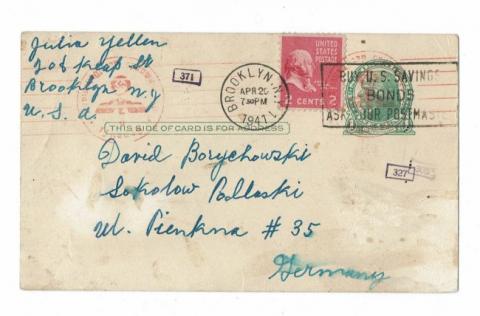 Julia Yellen
Brooklyn N.Y
U.S.A.
371
BROOKLYN N.Y.
APR 26
7:30PM
1941
UNITED STATES POSTAGE
2 CENTS 2
BUY U.S. SAVINGS
BONDS
ASK YOUR POSTMASTER
THIS SIDE OF CARD IS FOR ADDRESS
David Borychowski
Sokolow Podlaski
ul. Pienkna # 35
327
Germany